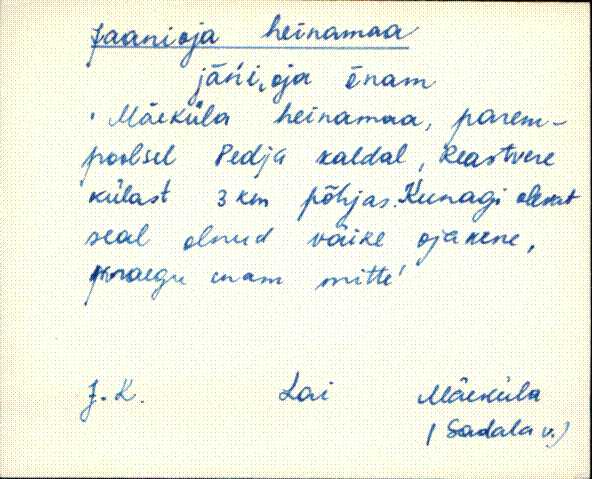 Jaanioja heinamaa
jäńi,oja ēnam
' Mäeküla heinamaa, parem-
poolsel Pedja kaldal, Reastvere
külast 3 km põhjas. Kunagi olevat
seal olnud väike ojakene,
praegu enam mitte'
J. K. Lai Mäeküla
(Sadala v.)